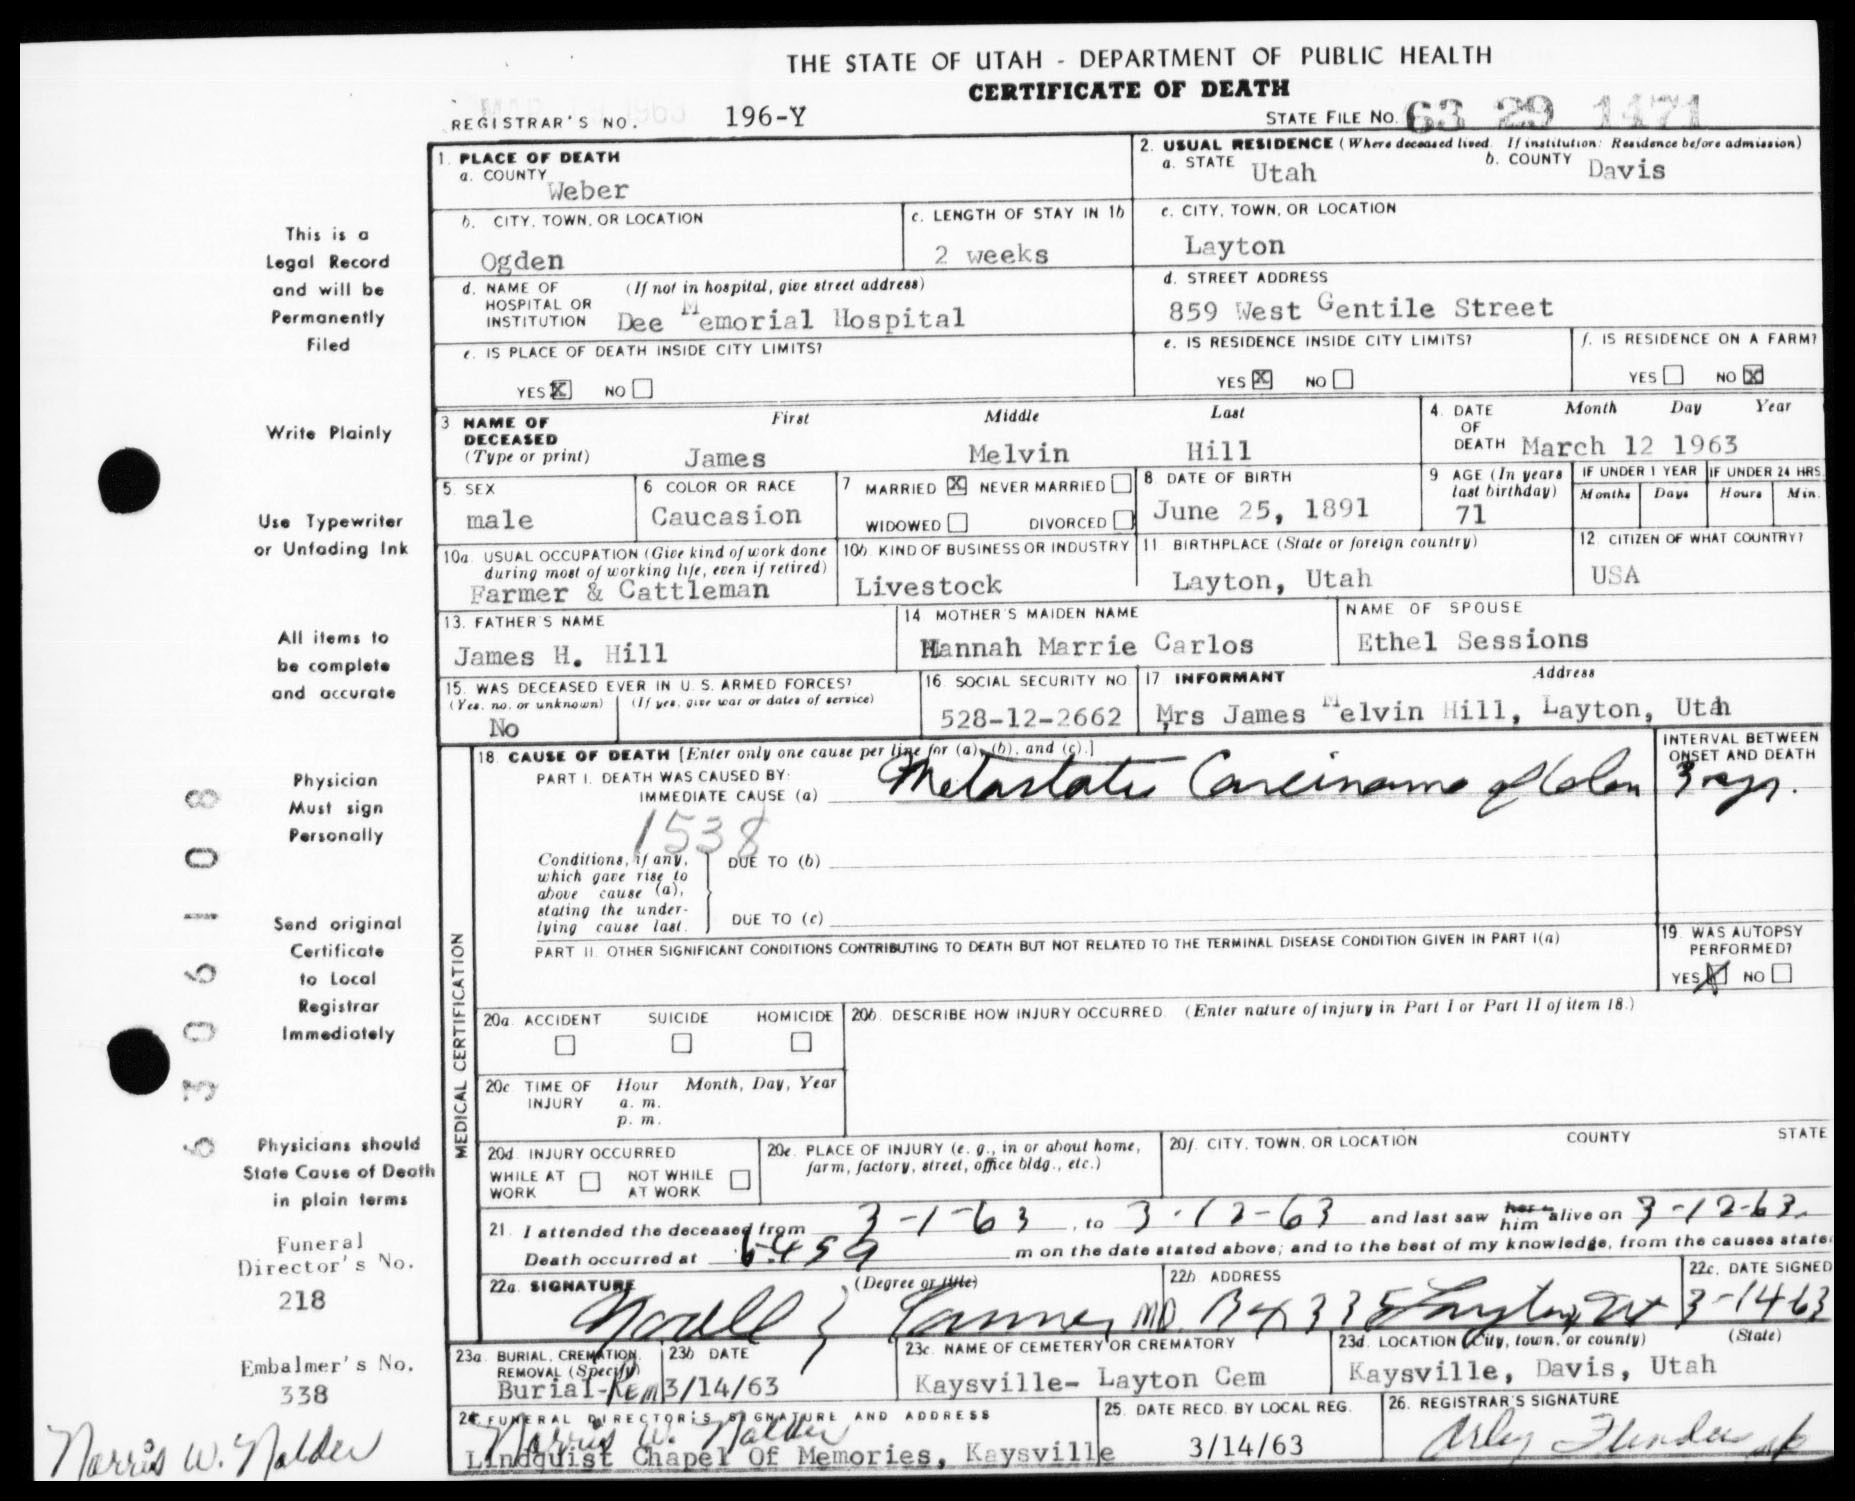 THE STATE OF UTAH - DEPARTMENT OF PUBLIC HEALTH
CERTIFICATE OF DEATH
REGISTRAR'S NO. 196-Y
STATE FILE NO. 63 29 1471
1. PLACE OF DEATH
a. COUNTY
Weber
2. USUAL RESIDENCE (Where deceased lived. If institution: Residence before admission)
a. STATE Utah b. COUNTY Davis
b. CITY, TOWN, OR LOCATION
Ogden
c. LENGTH OF STAY IN 1b
2 weeks
c. CITY, TOWN, OR LOCATION
Layton
d. NAME OF (If not in hospital, give street address)
HOSPITAL OR
INSTITUTION Dee Memorial Hospital
d. STREET ADDRESS
859 West Gentile Street
e. IS PLACE OF DEATH INSIDE CITY LIMITS?
YES X NO
e. IS RESIDENCE INSIDE CITY LIMITS?
YES X NO
f. IS RESIDENCE ON A FARM?
YES NO X
3 NAME OF First Middle Last
DECEASED
(Type or print) James Melvin Hill
4. DATE Month Day Year
OF
DEATH March 12 1963
5. SEX
male
6 COLOR OR RACE
Caucasion
7 MARRIED X NEVER MARRIED
WIDOWED DIVORCED
8 DATE OF BIRTH
June 25, 1891
9 AGE (In years
last birthday)
71
IF UNDER 1 YEAR IF UNDER 24 HRS.
Months Days Hours Min.
10a. USUAL OCCUPATION (Give kind of work done
during most of working life, even if retired)
Farmer & Cattleman
10b. KIND OF BUSINESS OR INDUSTRY
Livestock
11 BIRTHPLACE (State or foreign country)
Layton, Utah
12. CITIZEN OF WHAT COUNTRY?
USA
13. FATHER'S NAME
James H. Hill
14 MOTHER'S MAIDEN NAME
Hannah Marrie Carlos
NAME OF SPOUSE
Ethel Sessions
15. WAS DECEASED EVER IN U. S. ARMED FORCES?
(Yes, no, or unknown) (If yes, give war or dates of service)
No
16. SOCIAL SECURITY NO.
528-12-2662
17. INFORMANT Address
Mrs James Melvin Hill, Layton, Utah
MEDICAL CERTIFICATION
18. CAUSE OF DEATH [Enter only one cause per line for (a), (b), and (c).]
PART I. DEATH WAS CAUSED BY:
IMMEDIATE CAUSE (a) Metastatic Carcinoma of Colon
INTERVAL BETWEEN
ONSET AND DEATH
3 yr.
1538
Conditions, if any,
which gave rise to
above cause (a),
stating the under-
lying cause last.
DUE TO (b)
DUE TO (c)
PART II. OTHER SIGNIFICANT CONDITIONS CONTRIBUTING TO DEATH BUT NOT RELATED TO THE TERMINAL DISEASE CONDITION GIVEN IN PART I(a)
19. WAS AUTOPSY
PERFORMED?
YES X NO
20a. ACCIDENT SUICIDE HOMICIDE
20b. DESCRIBE HOW INJURY OCCURRED. (Enter nature of injury in Part I or Part II of item 18.)
20c. TIME OF Hour Month, Day, Year
INJURY a. m.
p. m.
20d. INJURY OCCURRED
WHILE AT NOT WHILE
WORK AT WORK
20e. PLACE OF INJURY (e. g., in or about home,
farm, factory, street, office bldg., etc.)
20f. CITY, TOWN, OR LOCATION COUNTY STATE
21. I attended the deceased from 3-1-63, to 3-12-63 and last saw her him alive on 3-12-63.
Death occurred at 6:45 a m on the date stated above; and to the best of my knowledge, from the causes state
22a. SIGNATURE (Degree or title)
Tanner, MD.
22b. ADDRESS
Bx 335 Layton, Ut
22c. DATE SIGNED
3-14-63
23a. BURIAL, CREMATION,
REMOVAL (Specify)
Burial-Rem
23b. DATE
3/14/63
23c. NAME OF CEMETERY OR CREMATORY
Kaysville- Layton Cem
23d. LOCATION (City, town, or county) (State)
Kaysville, Davis, Utah
24. FUNERAL DIRECTOR'S SIGNATURE AND ADDRESS
Norris W. Nalder
Lindquist Chapel Of Memories, Kaysville
25. DATE RECD. BY LOCAL REG.
3/14/63
26. REGISTRAR'S SIGNATURE
This is a
Legal Record
and will be
Permanently
Filed
Write Plainly
Use Typewriter
or Unfading Ink
All items to
be complete
and accurate
Physician
Must sign
Personally
Send original
Certificate
to Local
Registrar
Immediately
Physicians should
State Cause of Death
in plain terms
Funeral
Director's No.
218
Embalmer's No.
338
Norris W. Nalder
6306108